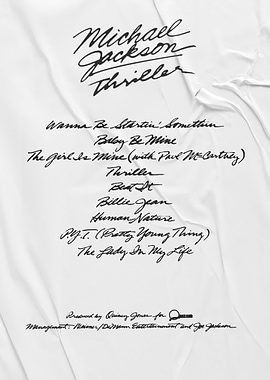 Michael
Jackson
Thriller
Wanna Be Startin' Somethin
Baby Be Mine
The Girl Is Mine (with Paul McCartney)
Thriller
Beat It
Billie Jean
Human Nature
P.Y.T. (Pretty Young Thing)
The Lady In My Life
Produced by Quincy Jones for
Management: Weisner/DeMann Entertainment and Joe Jackson